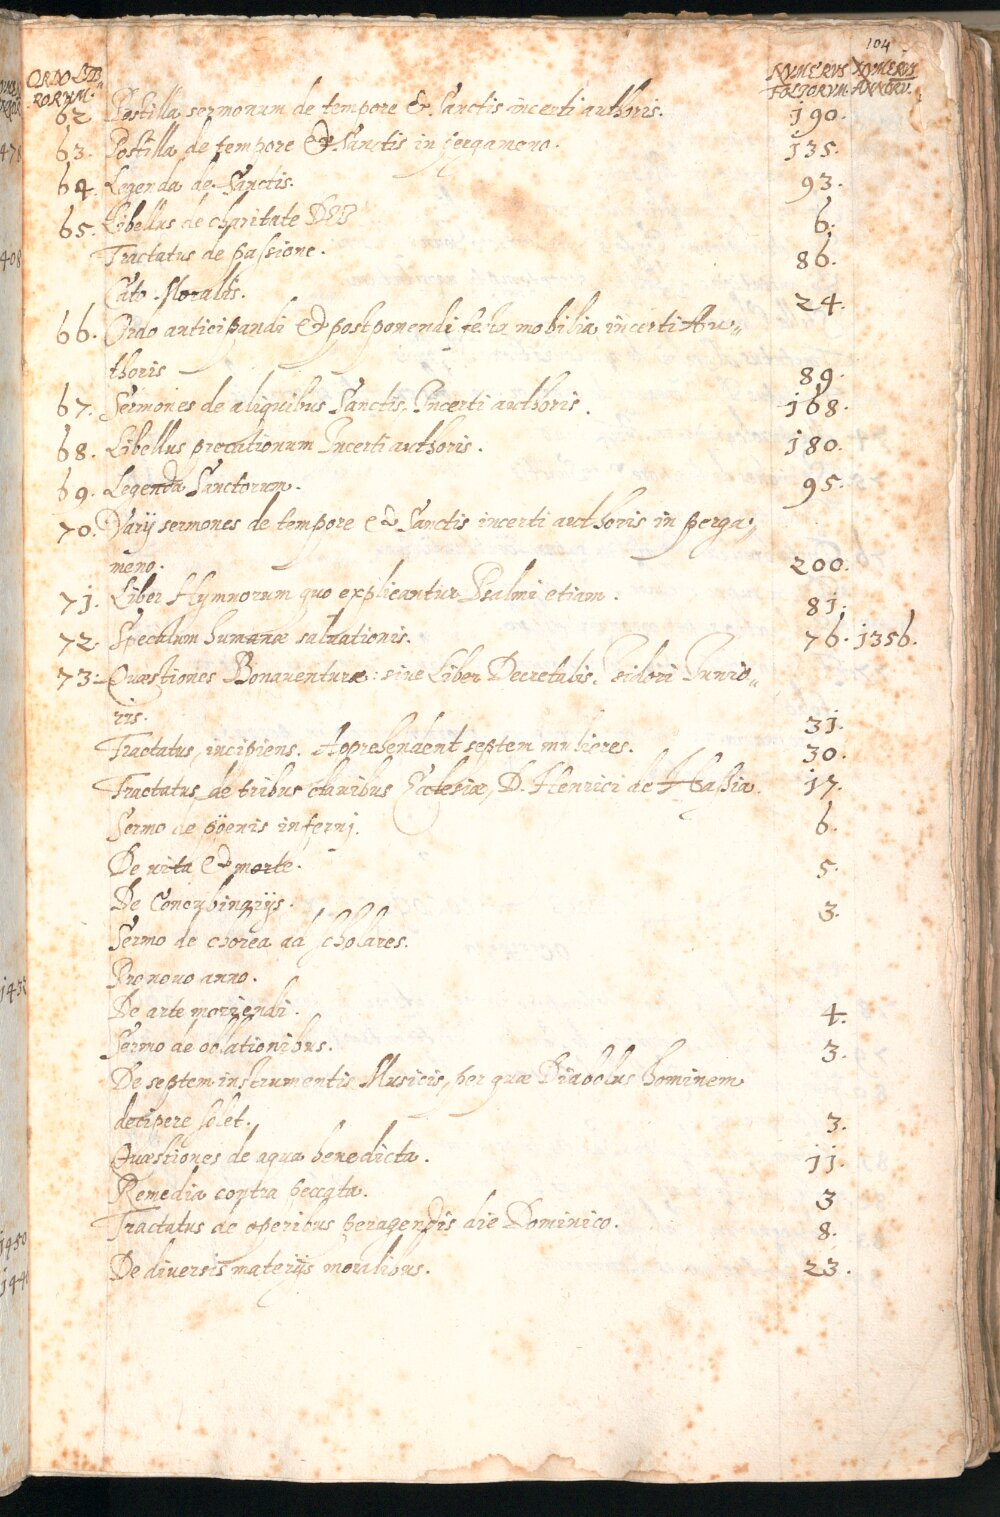 104
ORDO LIB„ NVMERVS NVMERVS
RORVM. FOLIORVM. ANNORV.
62 Postilla sermonum de tempore & Sanctis incerti authoris. 190.
63. Postilla de tempore & Sanctis in pergameno. 135.
64. Legenda de Sanctis. 93.
65. Libellus de charitate DEI 6.
Tractatus de passione. 86.
Cato Moralis. 24.
66. Ordo anticipandi & postponendi festa mobilia incerti Au„
thoris 89.
67. Sermones de aliquibus Sanctis. Incerti authoris. 168.
68. Libellus precationum Incerti authoris. 180.
69. Legenda Sanctorum. 95.
70. Varij sermones de tempore & Sanctis incerti authoris in perga„
meno. 200.
71. Liber Hymnorum quo explicantur Psalmi etiam. 81.
72. Speculum humanæ saluationis. 76. 1356.
73. Quæstiones Bonauenturæ: siue Liber Decretalis Isidori Iunio„
ris. 31.
Tractatus, incipiens. Apprehendent septem mulieres. 30.
Tractatus de tribus clauibus Ecclesiæ, D. Henrici de Hassia. 17.
Sermo de pöenis inferni. 6.
De vita & morte. 5.
De Concubinarijs. 3.
Sermo de chorea ad scholares.
Pro nouo anno.
De arte moriendi. 4.
Sermo de oblationibus. 3.
De septem instrumentis Musicis, per quæ Diabolus hominem
decipere solet. 3.
Quæstiones de aqua benedicta. 11.
Remedia contra peccata. 3
Tractatus de operibus peragendis die Dominico. 8.
De diuersis materijs moralibus. 23.